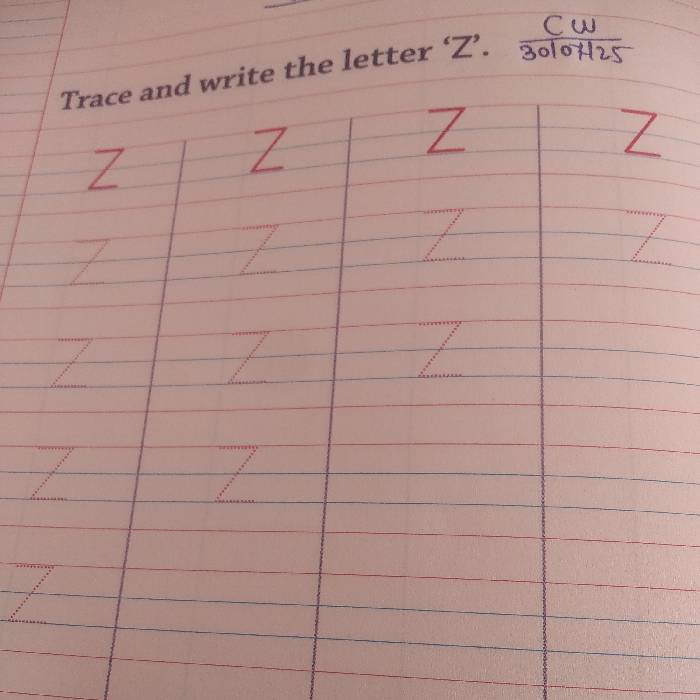 Trace and write the letter ‘Z’. CW
30/07/25
Z Z Z Z
Z Z Z Z
Z Z Z
Z Z
Z